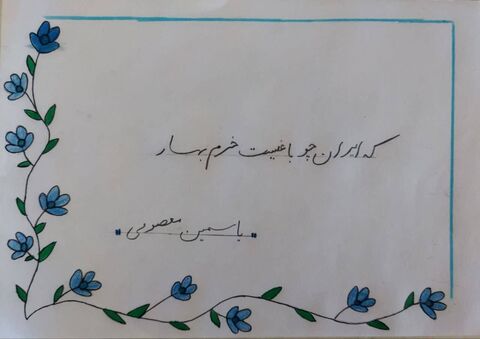 که ایران چو باغیست خرم بهار
یاسمین معصومی